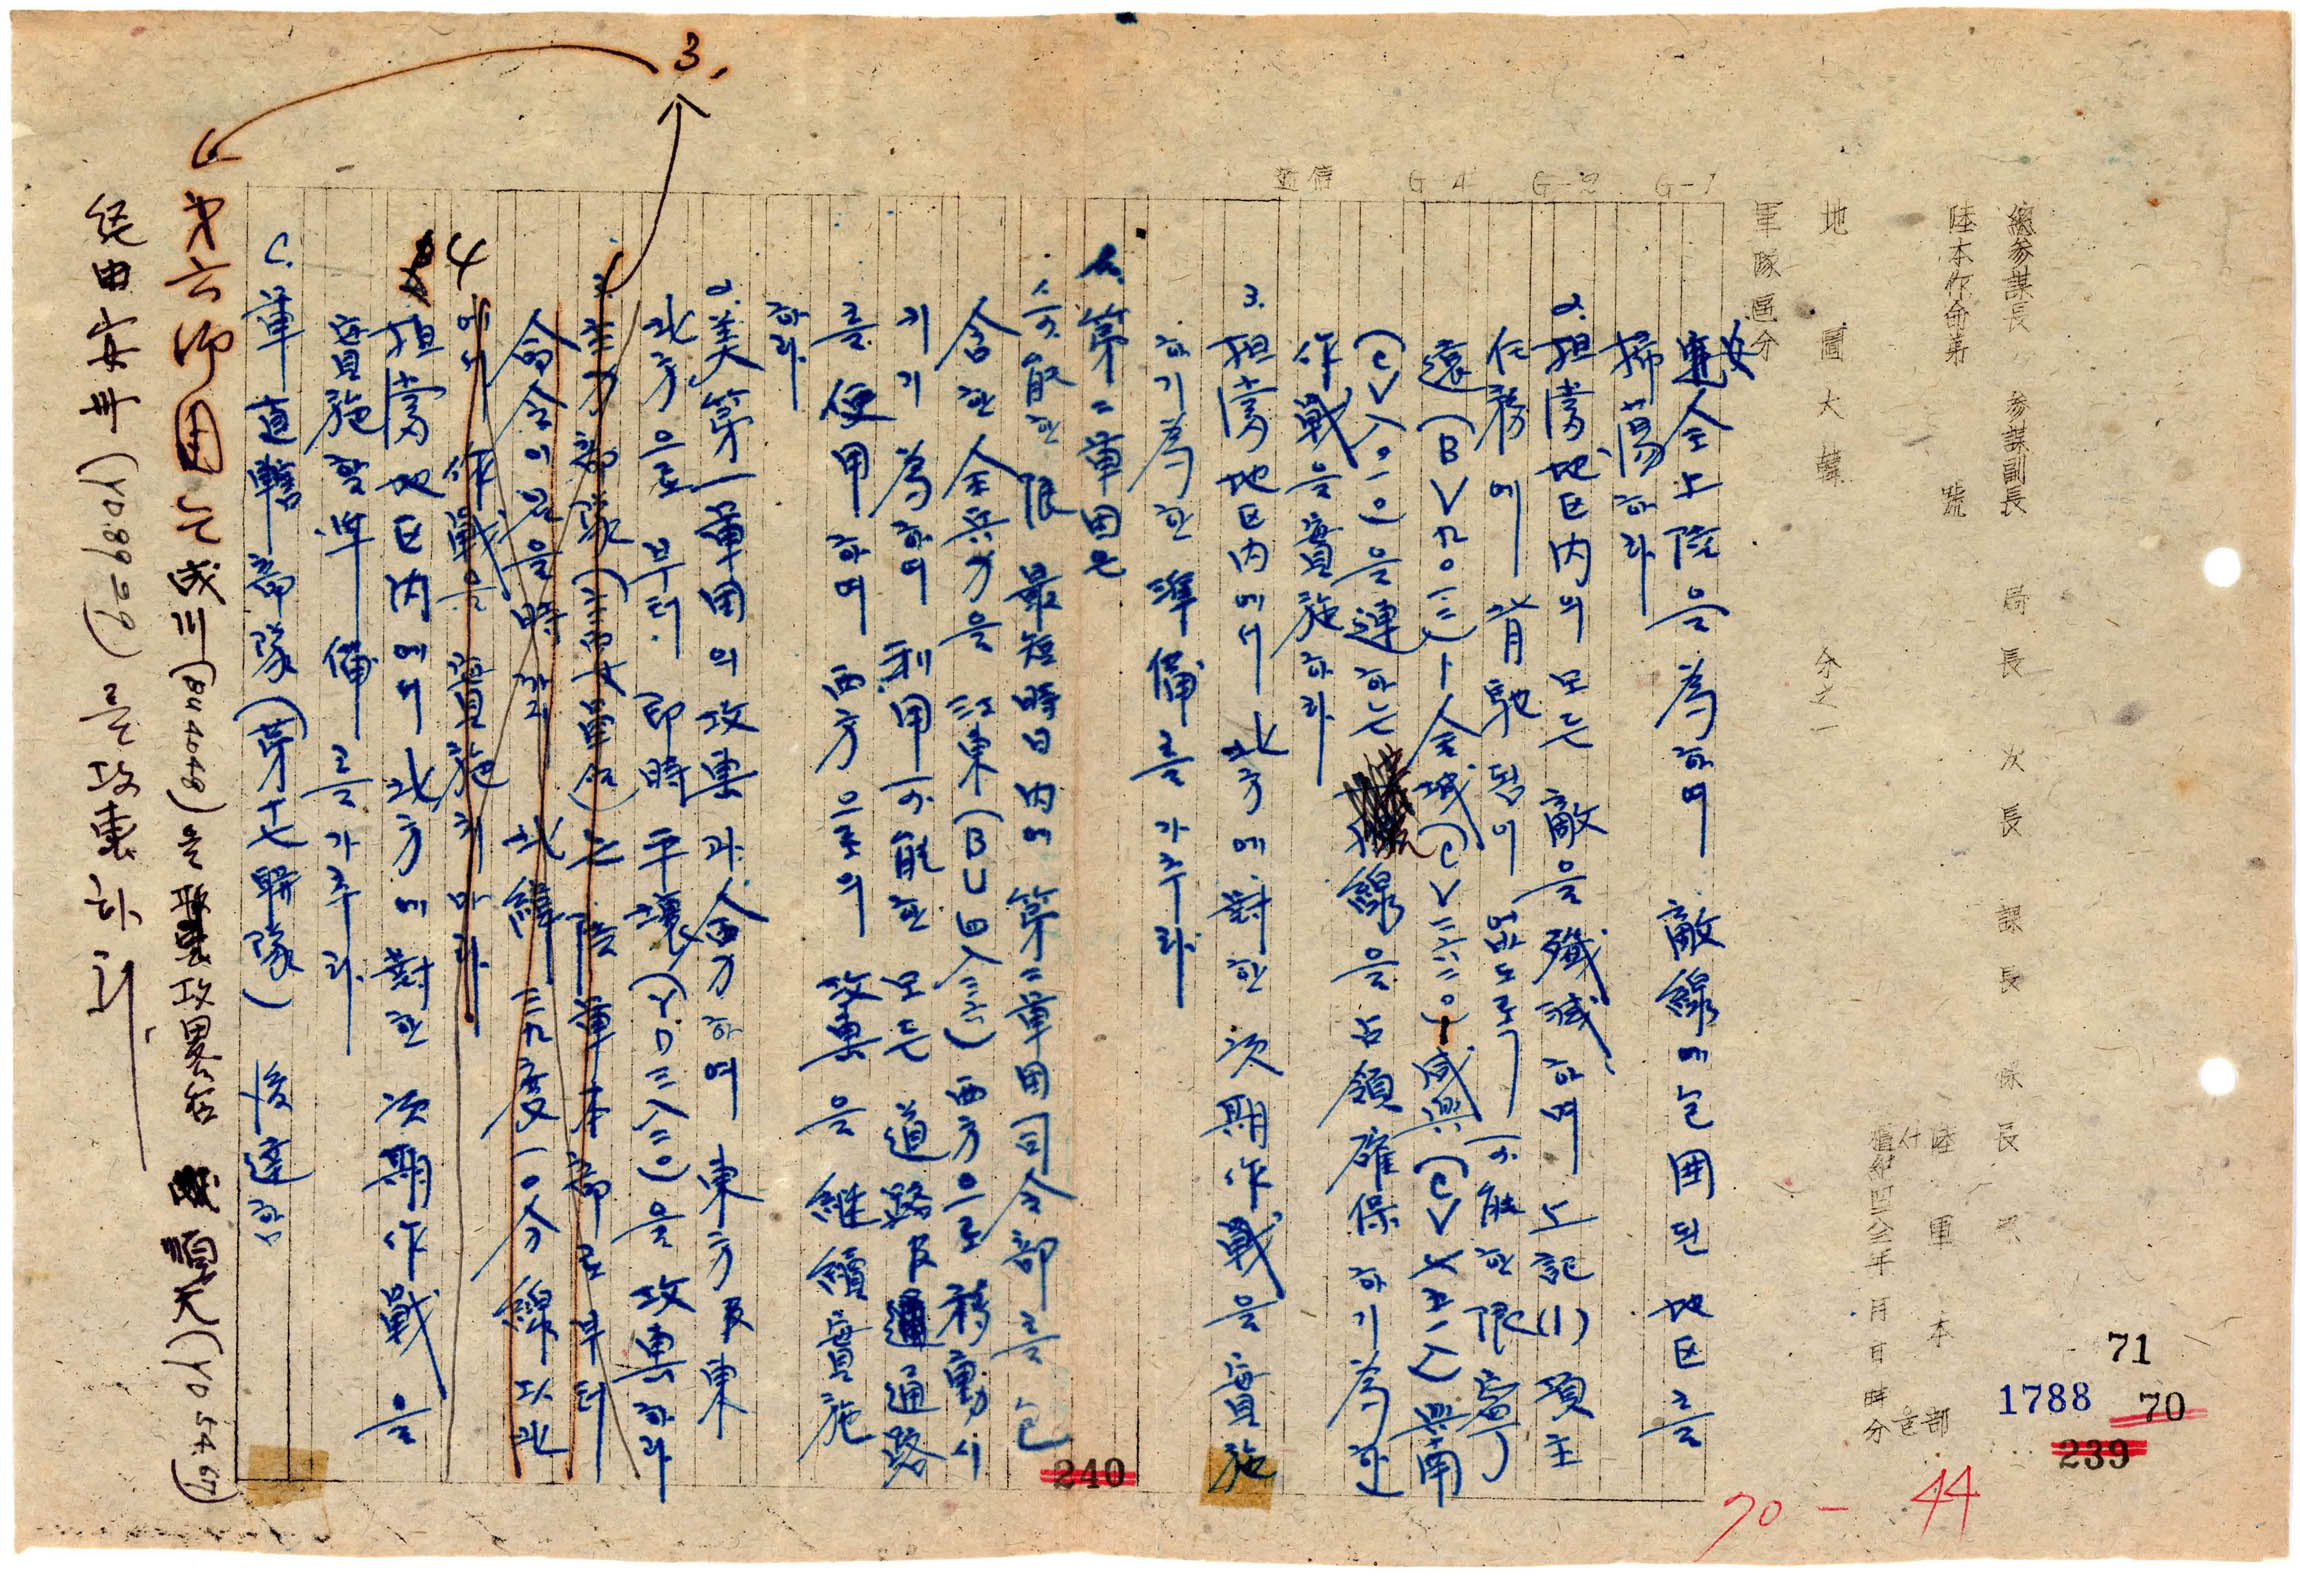 總參謀長 參謀副長 局長 次長 課長 係長
陸本作命第 號
陸軍本部
檀紀四二八三年 月 日 時 分
地圖 大韓 分之一
軍隊區分
G-1
G-2
G-4
通信
安全上陸을 爲하여 敵線에 包囲된 地区를
掃蕩하라
2. 担當地区内의 모든 敵을 殲滅하며 上記(1)項主
任務에 背馳됨이 없도록 可能한限 寧
遠(BV九〇三三)-金城(CV三六二〇)-咸興(CV七五一八)興南
(CV八〇一〇)을 連하는 線을 占領確保하기 爲한
作戰을 實施하라
3. 担當地区内에서 北方에 對한 次期作戰을 實施
하기 爲한 準備를 가추라
第二軍団은
1. 可能한 限 最短時日内에 第二軍団司令部를 包
含한 全兵力을 江東(BU四八三六) 西方으로 移動시
키기 爲하여 利用可能한 모든 道路及通路
를 使用하여 西方으로의 攻擊을 継續實施
하라
2. 美第一軍団의 攻擊과 合力하여 東方及東
北方으로부터 即時 平壤(YD三八三〇)을 攻擊하라
3.
3. 主力部隊 는 陸軍本部로부터
命令이 있을時까지 北緯 三九度一〇分線以北
에서 作戰을 實施치 마라
4 担當地区内에서 北方에 對한 次期作戰을
實施할 準備를 가추라
C. 軍直轄部隊(第十七聯隊) 後達함
第六師団은 成川(BU4048)을 攻畧后 順天(YD5467)
経由 安州(YD8929)를 攻擊하라
71
1788 70
239
240
70-44